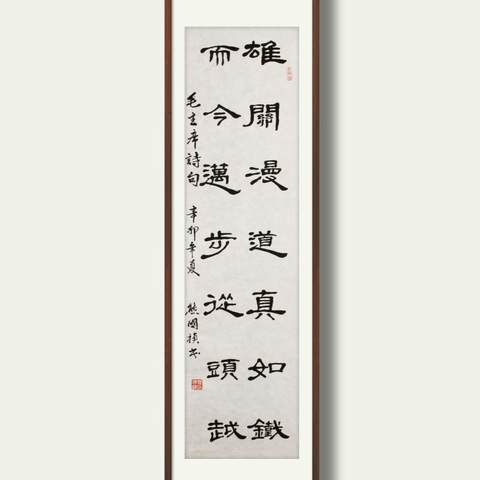 雄關漫道真如鐵
而今邁步從頭越
毛主席詩句 辛卯年夏 熊國 書